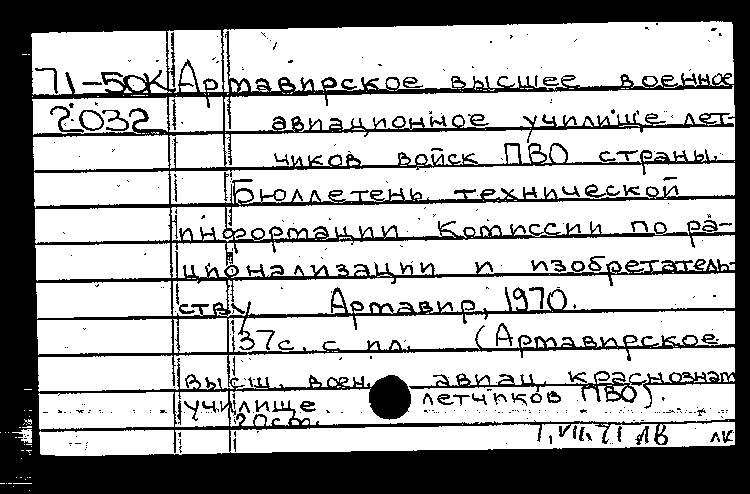 71-50К Артавирское высшее военное
2032 авиационное училище лет-
чиков войск ПВО страны.
Бюллетень технической
информации Комиссии по ра-
ционализации и изобретатель-
ству Армавир, 1970.
37с. с ил. (Армавирское
высш. воен. авиац. краснознам
училище летчиков ПВО).
20см.
1.VII.71 ЛВ лк